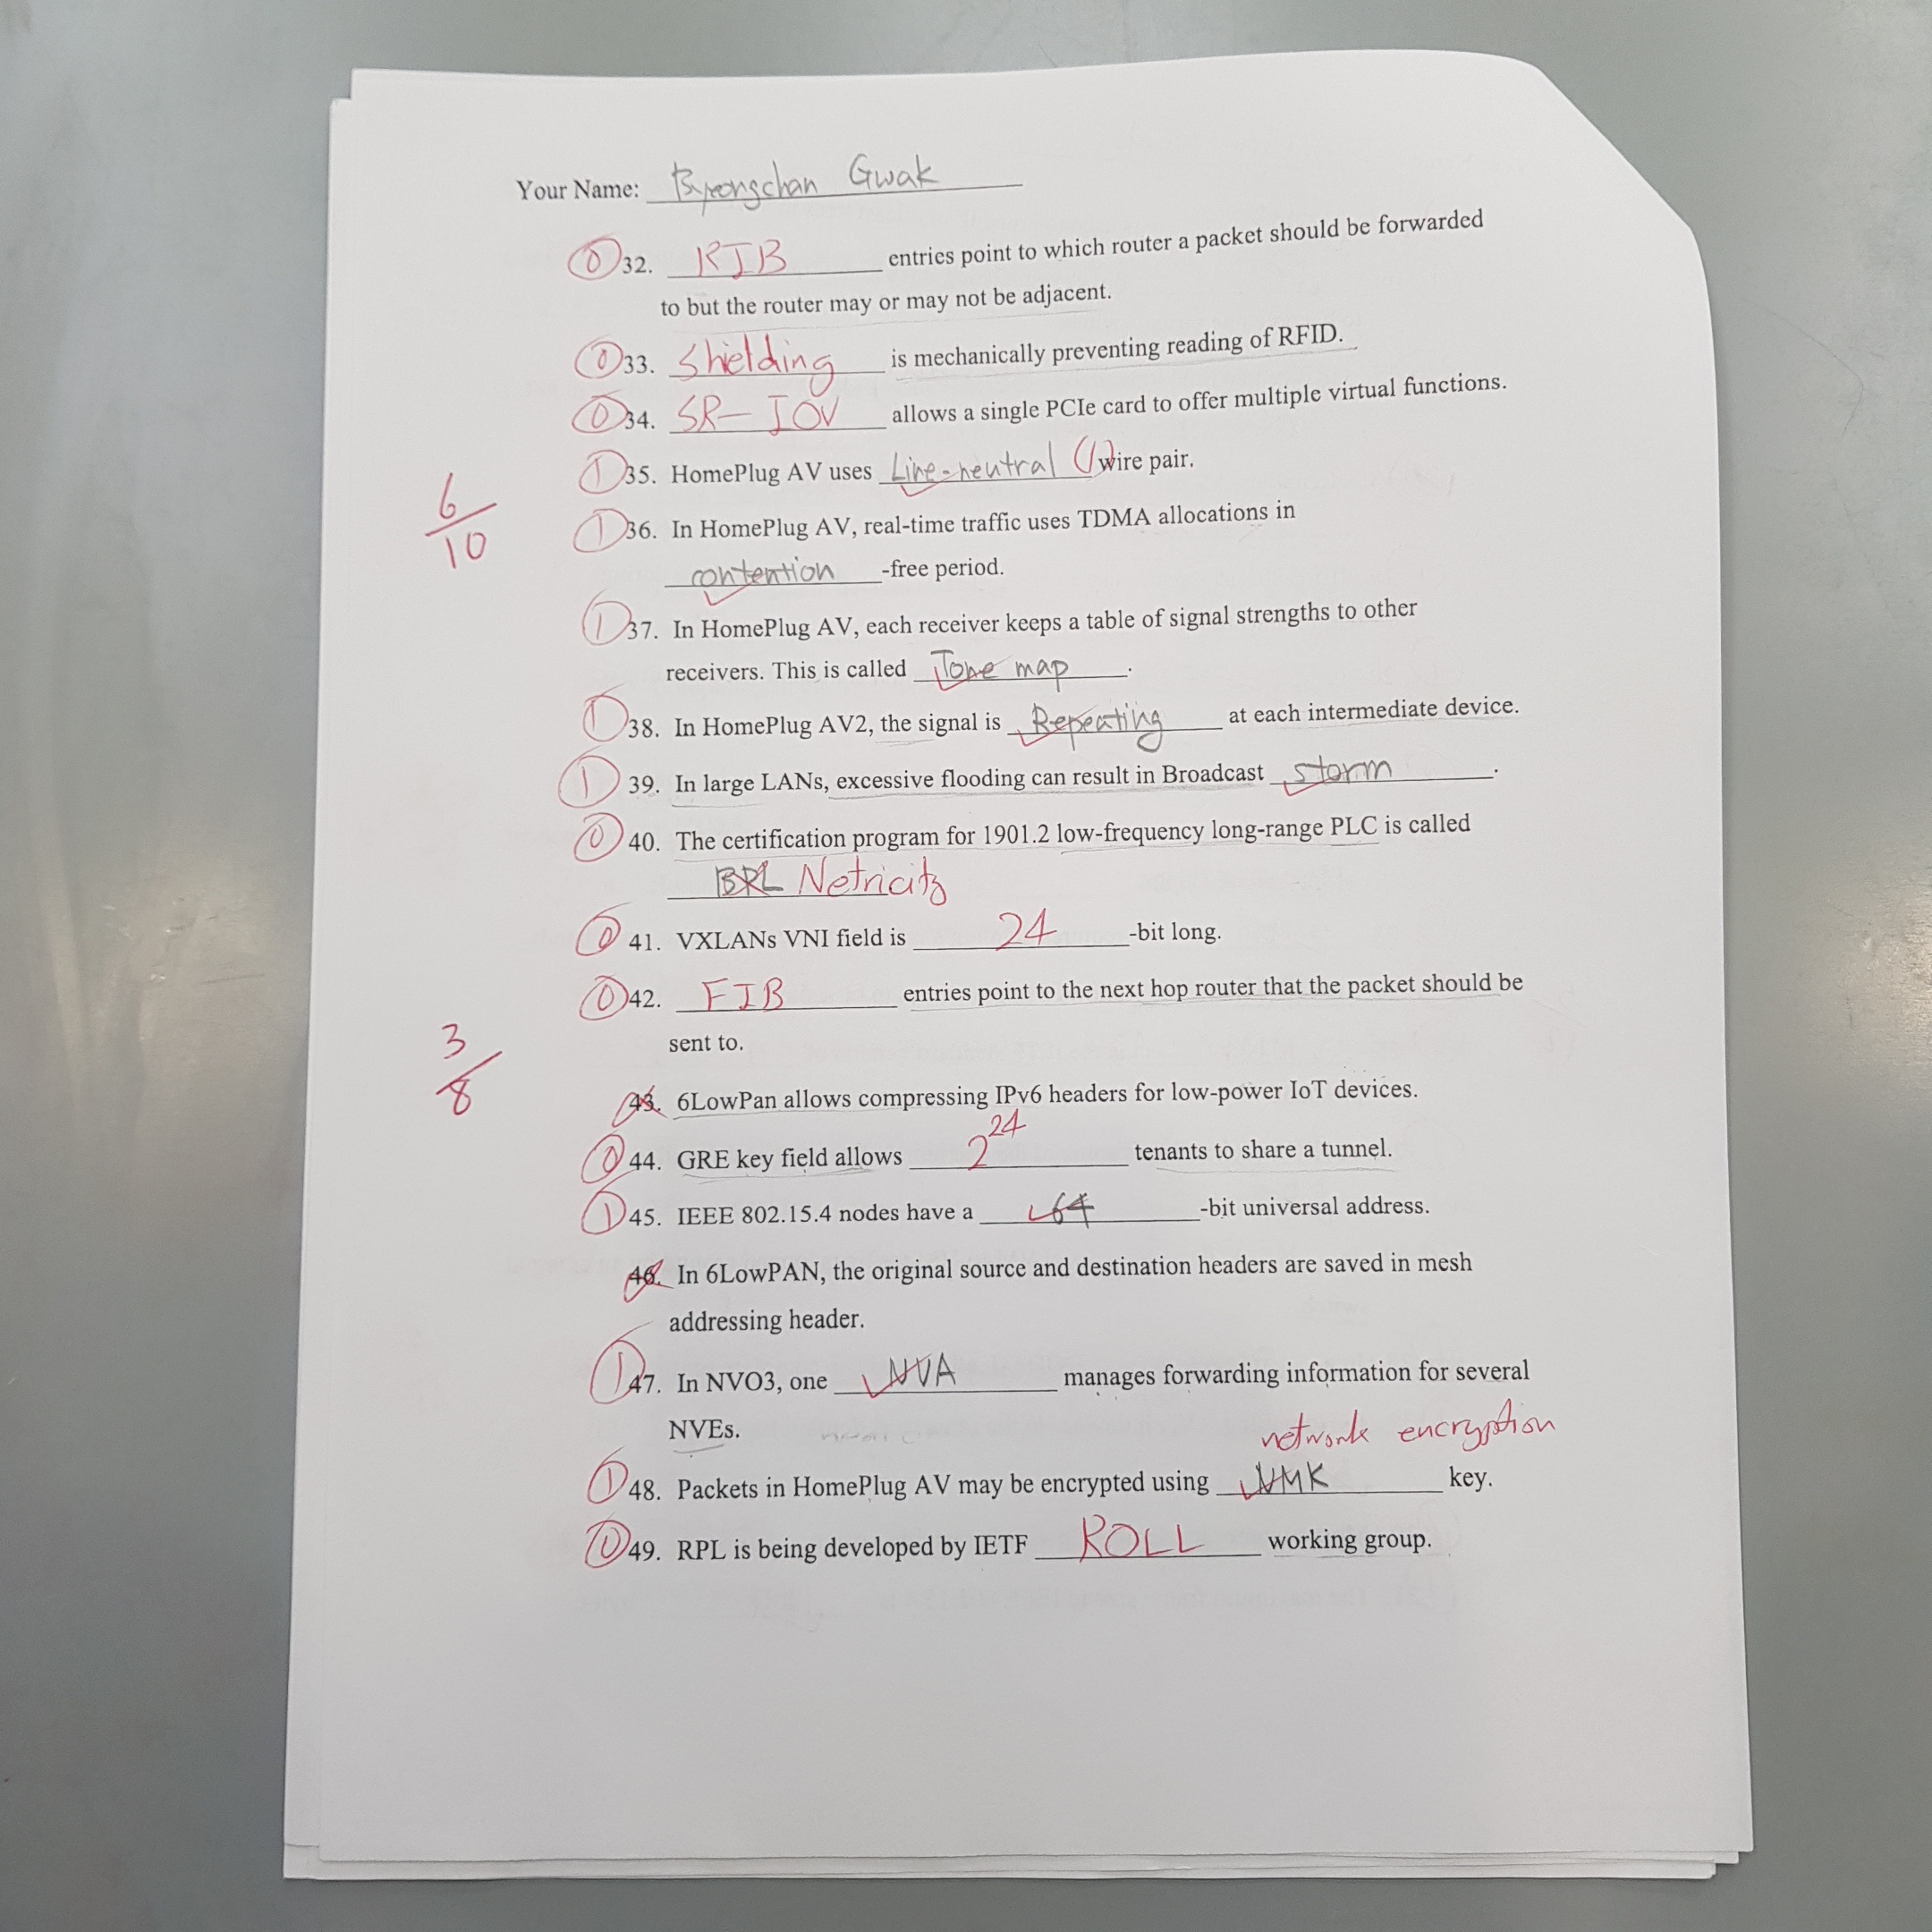 Your Name: Byeongchan Gwak
0 32. RIB entries point to which router a packet should be forwarded
to but the router may or may not be adjacent.
0 33. Shielding is mechanically preventing reading of RFID.
0 34. SR-IOV allows a single PCIe card to offer multiple virtual functions.
1 35. HomePlug AV uses Line-neutral (1) wire pair.
6/10
1 36. In HomePlug AV, real-time traffic uses TDMA allocations in
contention -free period.
1 37. In HomePlug AV, each receiver keeps a table of signal strengths to other
receivers. This is called Tone map.
1 38. In HomePlug AV2, the signal is Repeating at each intermediate device.
1 39. In large LANs, excessive flooding can result in Broadcast storm.
0 40. The certification program for 1901.2 low-frequency long-range PLC is called
BPL Netricity
0 41. VXLANs VNI field is 24 -bit long.
0 42. FIB entries point to the next hop router that the packet should be
sent to.
3/8
43. 6LowPan allows compressing IPv6 headers for low-power IoT devices.
0 44. GRE key field allows 2^24 tenants to share a tunnel.
1 45. IEEE 802.15.4 nodes have a 64 -bit universal address.
46. In 6LowPAN, the original source and destination headers are saved in mesh
addressing header.
1 47. In NVO3, one NVA manages forwarding information for several
NVEs.
network encryption
1 48. Packets in HomePlug AV may be encrypted using NMK key.
0 49. RPL is being developed by IETF ROLL working group.